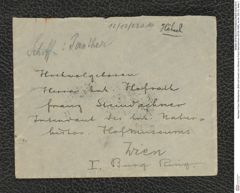 Hôtel
Schiff: Panther
Hochwolgeboren
Herrn Hofrath
Franz Steindachner
Intendant des k.k. Natur-
histor. Hofmuseums
Wien
I. Burg Ring.